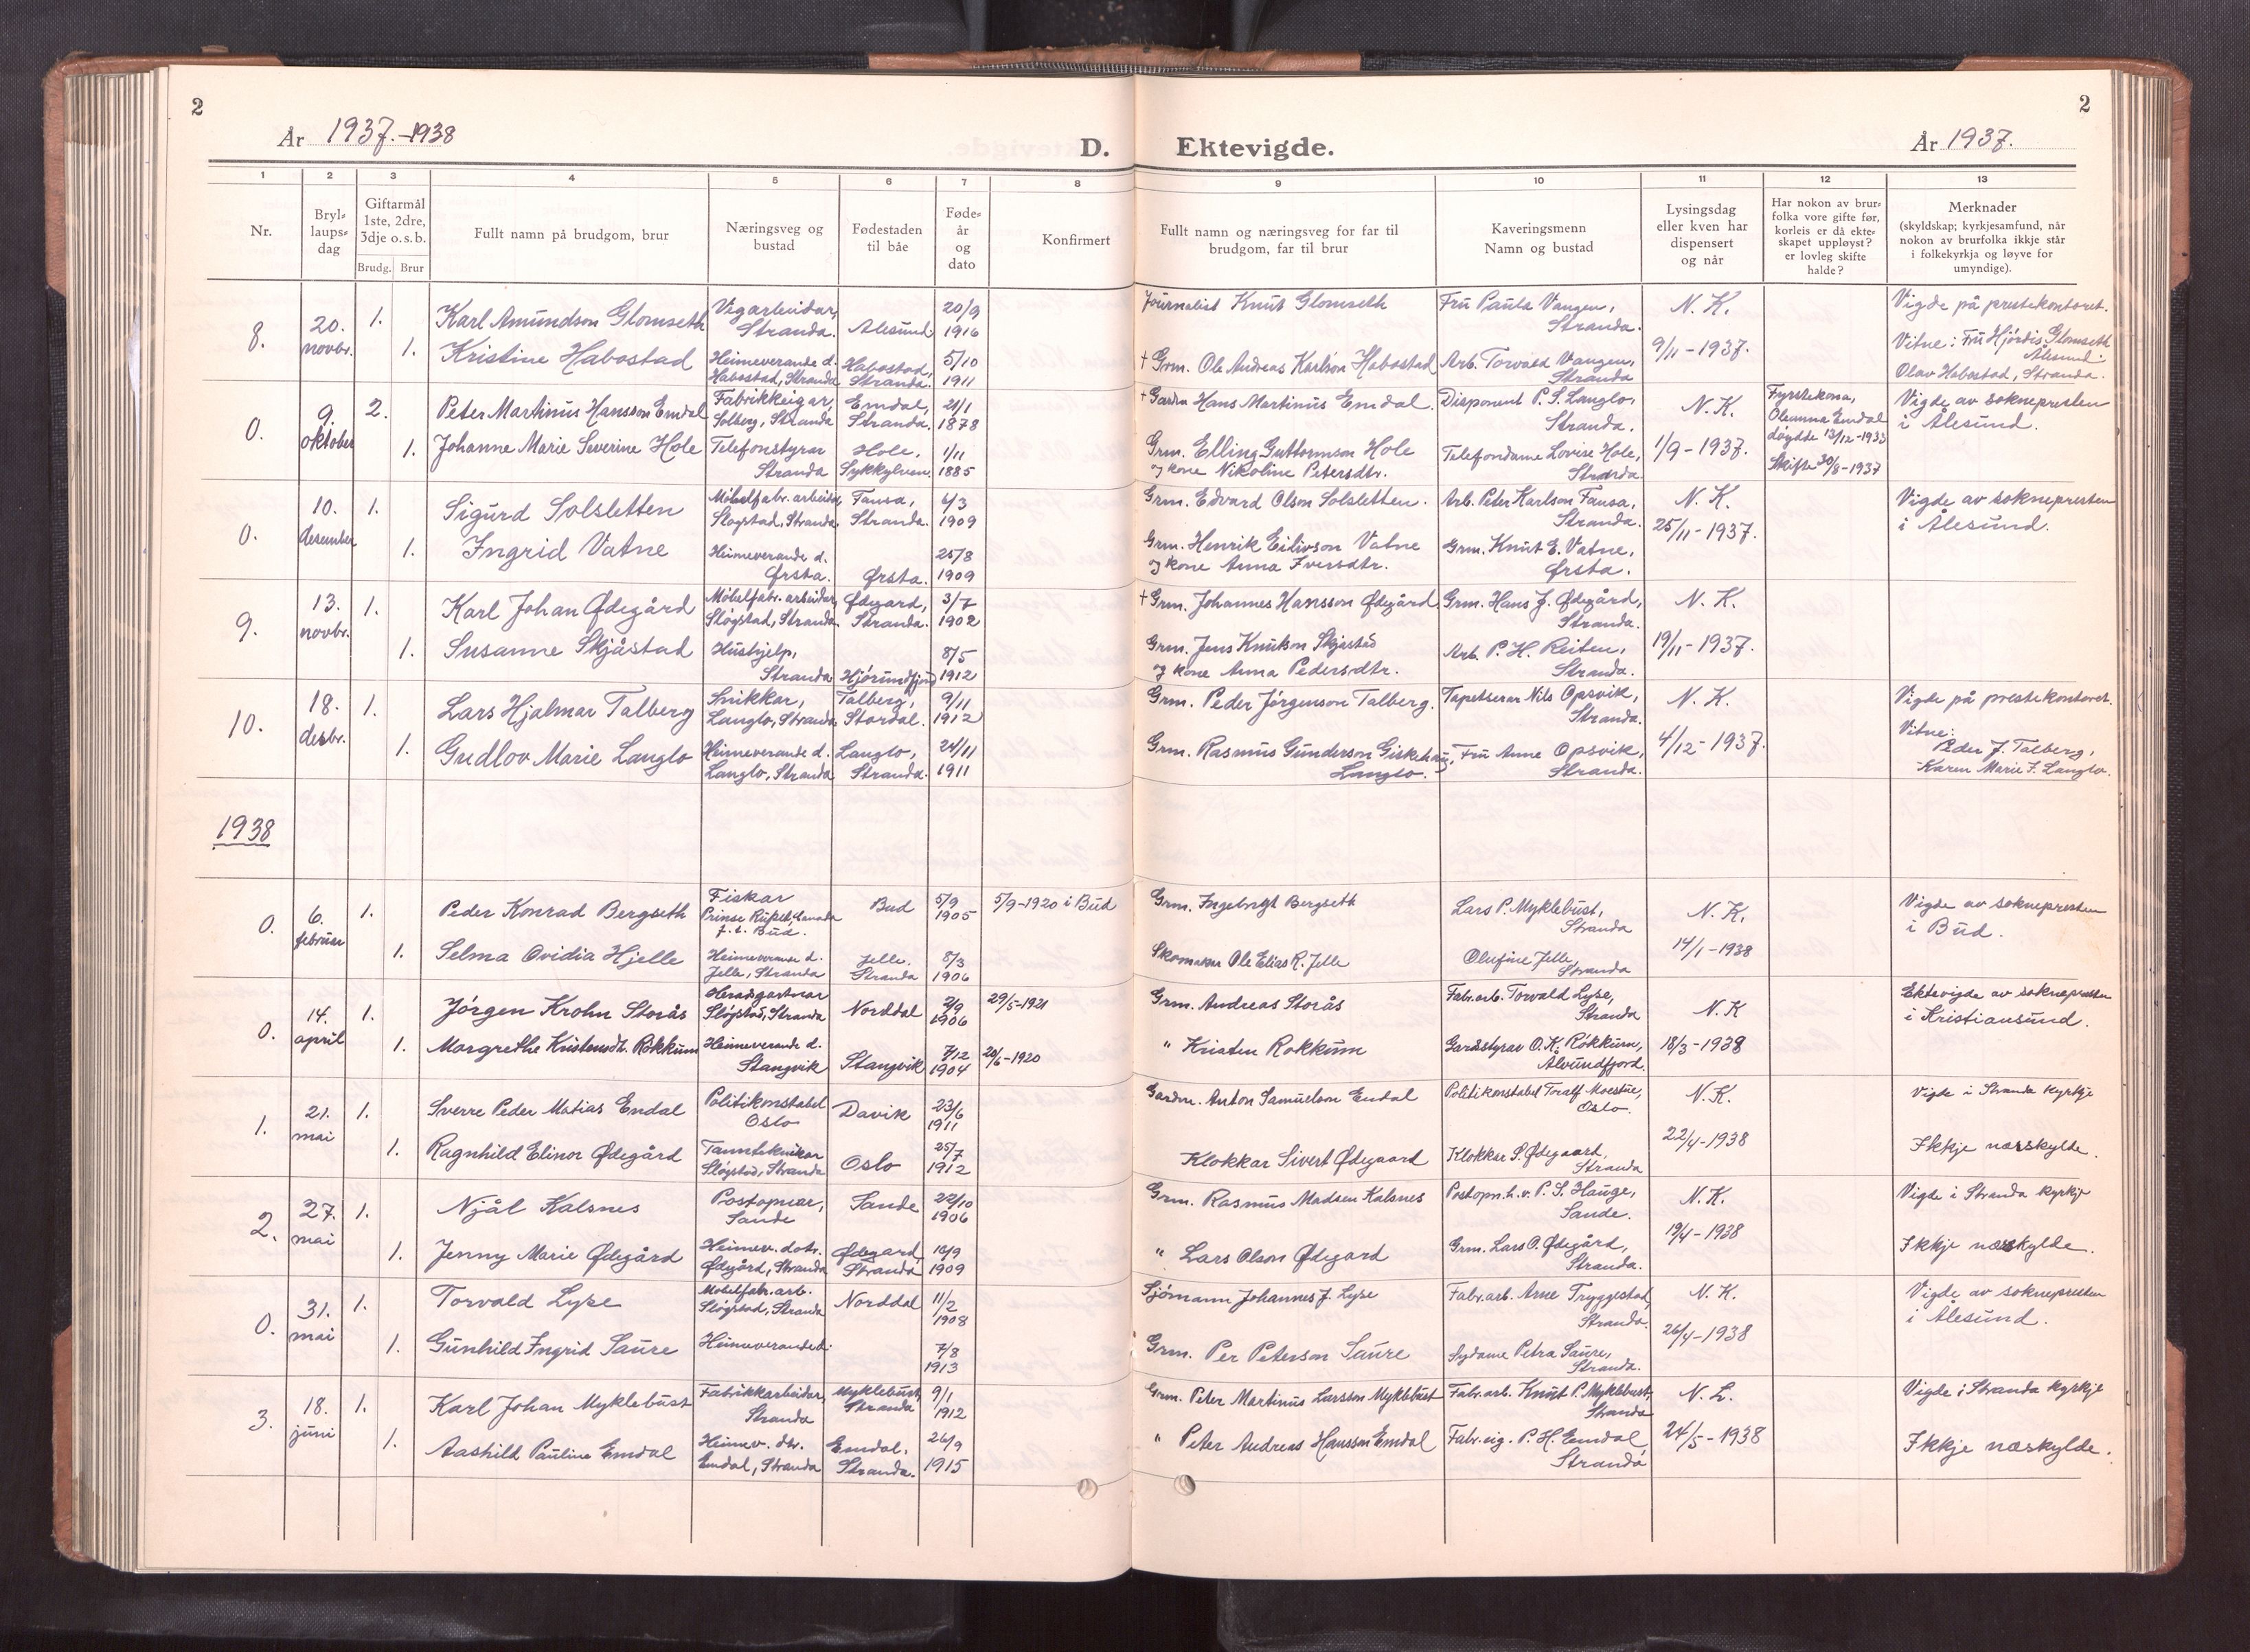 2
År 1937.-1938
D.
Ektevigde.
År 1937.
2
1 2 3 4 5 6 7 8 9 10 11 12 13
Nr.
Bryl-
laups-
dag
Giftarmål
1ste, 2dre,
3dje o. s. b.
Brudg. Brur
Fullt namn på brudgom, brur
Næringsveg og
bustad
Fødestaden
til båe
Føde-
år
og
dato
Konfirmert
Fullt namn og næringsveg for far til
brudgom, far til brur
Kaveringsmenn
Namn og bustad
Lysingsdag
eller kven har
dispensert
og når
Har nokon av brur-
folka vore gifte før,
korleis er då ekte-
skapet uppløyst?
er lovleg skifte
halde?
Merknader
(skyldskap; kyrkjesamfund, når
nokon av brurfolka ikkje står
i folkekyrkja og løyve for
umyndige).
8.
20.
novbr.
1.
Karl Amundson Glomseth
Vegarbeidar,
Stranda.
Ålesund
20/9
1916
Journalist Knut Glomseth
Fru Paula Vangen,
Stranda.
N. K.
9/11-1937.
Vigde på prestekontoret.
1.
Kristine Habostad
Heimeverande d.
Habostad, Stranda
Habostad,
Stranda.
5/10
1911
+ Grm. Ole Andreas Karlson Habostad
Arb. Torvald Vangen,
Stranda
Vitne: Fru Hjördis Glomseth
Ålesund.
Olav Habostad, Stranda.
0.
9.
oktober
2.
Peter Martinus Hansson Emdal
Fabrikkeigar,
Solberg, Stranda
Emdal,
Stranda.
21/1
1878
+ Gardm Hans Martinus Emdal.
Disponent P. S. Langlo,
Stranda.
N. K.
1/9-1937.
Fyrstekona,
Oleanna Emdal
döydde 13/12-1933
Skifte 30/8-1937
Vigde av soknepresten
i Ålesund.
1.
Johanne Marie Severine Hole
Telefonstyrar
Stranda
Hole,
Sykkylven.
1/11
1885
Grm. Elling Guttormson Hole
og kone Nikoline Petersdtr.
Telefondame Lovise Hole,
Stranda.
0.
10.
desember
1.
Sigurd Solsletten
Möbelfabr. arbeidar,
Slogstad, Stranda.
Fausa,
Stranda.
6/3
1909
Grm. Edvard Olson Solsletten.
Arb. Peter Karlson Fausa,
Stranda.
N. K.
25/11-1937.
Vigde av soknepresten
i Ålesund.
1.
Ingrid Vatne
Heimeverande d.
Ørsta.
Ørsta.
25/8
1909
Grm. Henrik Eilivson Vatne
og kone Anna Iversdtr.
Grm. Knut E. Vatne,
Ørsta.
9.
13.
novbr.
1.
Karl Johan Ødegård
Möbelfabr. arbeidar,
Slögstad, Stranda.
Ødegard,
Stranda.
3/7
1902
+ Grm. Johannes Hansson Ødegård.
Grm. Hans J. Ødegård,
Stranda.
N. K.
19/11-1937.
1.
Susanne Skjåstad
Hushjelp,
Stranda
Hjörundfjord
8/5
1912
Grm. Jens Knutson Skjåstad
og kone Anna Pedersdtr.
Arb. P. H. Reiten,
Stranda.
10.
18.
desbr.
1.
Lars Hjalmar Talberg
Snikkar,
Langlo, Stranda
Talberg,
Stordal.
9/11
1912
Grm. Peder Jörgenson Talberg.
Tapetserar Nils Opsvik,
Stranda.
N. K.
4/12-1937.
Vigde på prestekontoret.
1.
Gudlov Marie Langlo
Heimeverande d.
Langlo, Stranda
Langlo,
Stranda.
24/11
1911
Grm. Rasmus Gunderson
Langlo.
Fru Anne Opsvik,
Stranda.
Vitne:
Peder J. Talberg,
Karen Marie J. Langlo.
1938
0.
6.
februar
1.
Peder Konrad Bergseth
Fiskar
Prince Rupert, Canada
f. t. Bud.
Bud
5/9
1905
5/9-1920 i Bud
Grm. Ingebrigt Bergseth
Lars P. Myklebust,
Stranda
N. K.
14/1-1938
Vigde av soknepresten
i Bud.
1.
Selma Ovidia Hjelle
Heimeverande d.
Jelle, Stranda
Jelle.
Stranda
8/3
1906
Skomakar Ole Elias R. Jelle
Olufine Jelle,
Stranda
0.
14.
april
1.
Jörgen Krohn Storås
Heradsgartnar
Slögstad, Stranda
Norddal
2/9
1906
29/5-1921
Grm. Andreas Storås
Fabr.arb. Torvald Lyse,
Stranda
N. K
18/3-1938
Ektevigde av soknepresten
i Kristiansund.
1.
Margrethe Kristensdt. Rökkum
Heimeverande d.
Stangvik
Stangvik
7/12
1904
20/6-1920
" Kristen Rokkum
Gardstyrar O. K. Rökkum,
Ålvundfjord.
1.
21.
mai
1.
Sverre Peder Matias Endal
Politikonstabel
Oslo
Davik
23/6
1911
Gardm. Anton Samuelson Endal
Politikonstabel Toralf Moestue,
Oslo.
N. K.
22/4-1938
Vigde i Stranda kyrkje
1.
Ragnhild Elinor Ødegård
Tannteknikar
Slögstad, Stranda
Oslo
25/7
1912
Klokkar Sivert Ødegaard
Klokkar S. Ødegaard,
Stranda
Ikkje nærskylde.
2.
27.
mai
1.
Njål Kalsnes
Postopnar,
Sande
Sande
22/10
1906
Grm. Rasmus Madsen Kalsnes
Postopn. h.v. P. S. Hauge,
Sande.
N. K.
19/4-1938
Vigde i Stranda kyrkje
1.
Jenny Marie Ødegård
Heimev. dotr.
Ødegård, Stranda
Ødegard,
Stranda
10/9
1909
" Lars Olson Ødegard
Grm. Lars O. Ødegård,
Stranda.
Ikkje nærskylde.
0.
31.
mai
1.
Torvald Lyse
Möbelfabr. arb.
Slögstad, Stranda
Norddal
11/2
1908
Sjömann Johannes J. Lyse
Fabr.arb. Arne Tryggestad,
Stranda.
N. K.
26/4-1938
Vigde av soknepresten
i Ålesund.
1.
Gunhild Ingrid Saure
Heimeverande d.
7/8
1913
Grm. Per Peterson Saure
Sydame Petra Saure,
Stranda.
3.
18.
juni
1.
Karl Johan Myklebust
Fabrikkarbeidar,
Stranda
Myklebust,
Stranda
9/1
1912
Grm. Peter Martinus Larsson Myklebust
Fabr.arb. Knut P. Myklebust,
Stranda
N. L.
24/5-1938
Vigde i Stranda kyrkje
1.
Aashild Pauline Emdal
Heimev. dtr.
Emdal, Stranda
Emdal,
Stranda.
26/9
1915
" Peter Andreas Hansson Emdal
Fabr.eig. P. H. Emdal,
Stranda
Ikkje næskylde.